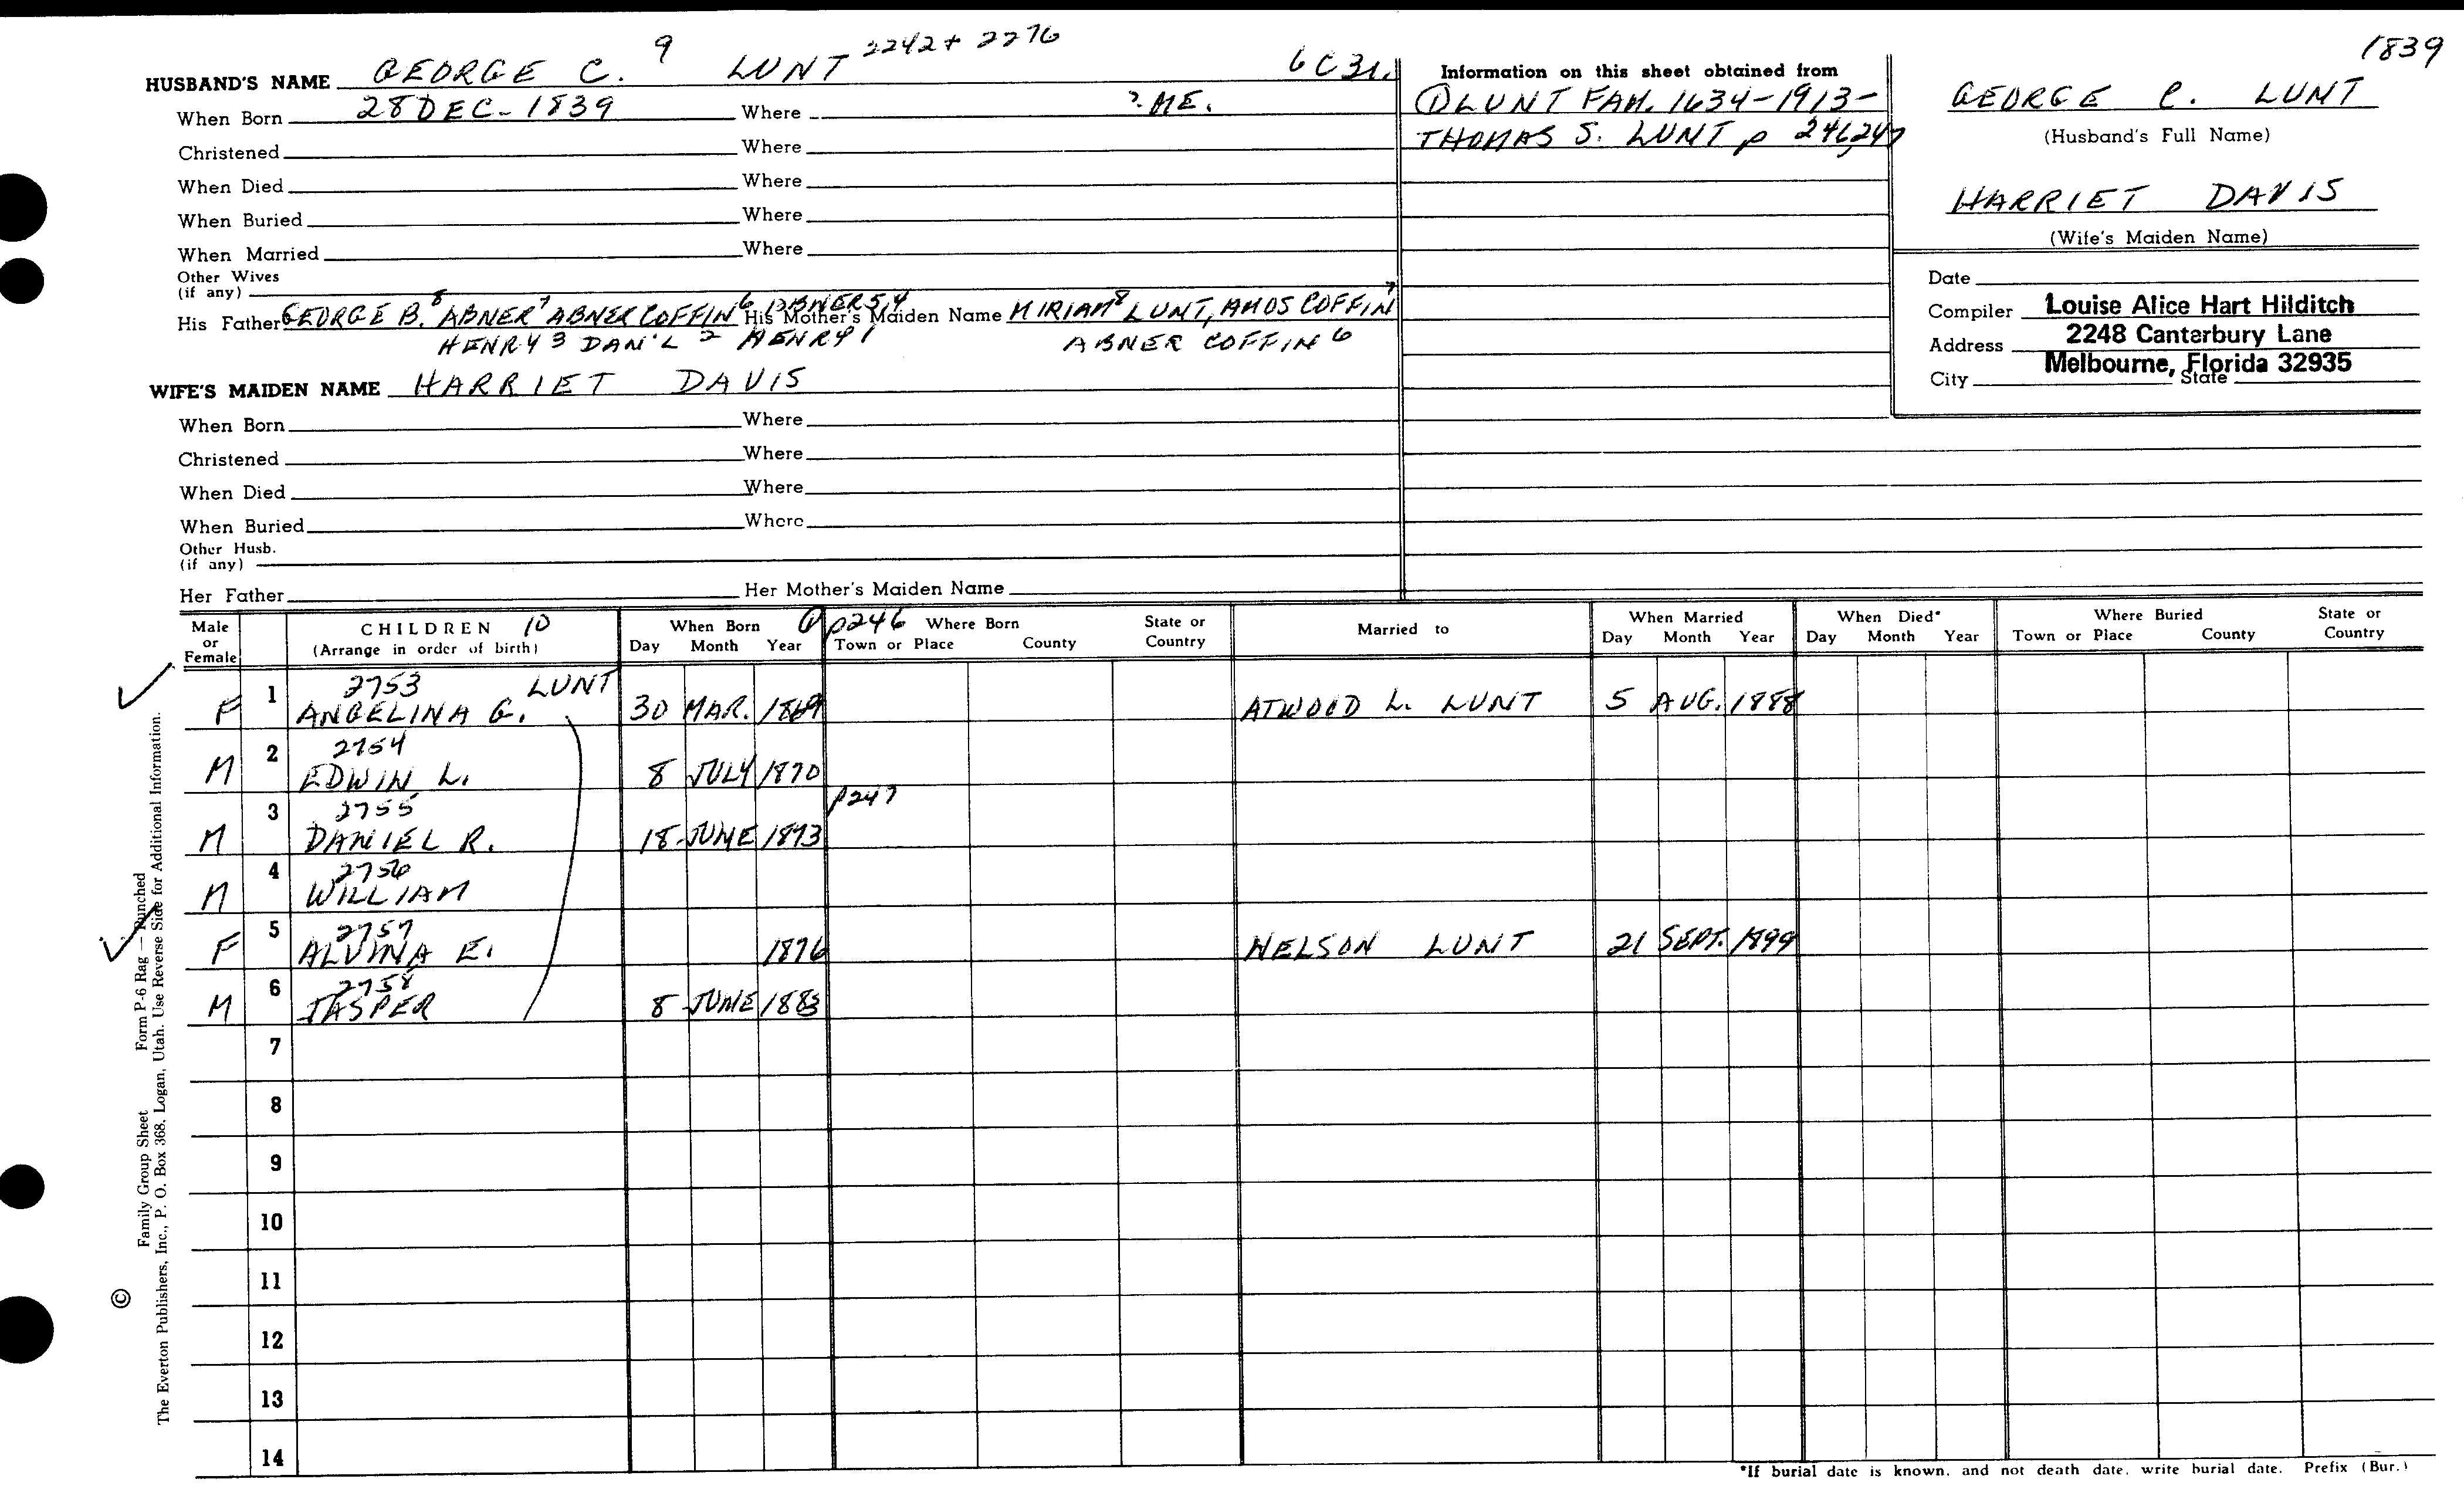 1839
HUSBAND'S NAME GEORGE C. 9 LUNT 2242 + 2276 6C31.
When Born 28 DEC- 1839 Where ? ME.
Christened Where
When Died Where
When Buried Where
When Married Where
Other Wives
(if any)
His Father GEORGE B. 8 ABNER 7 ABNER COFFIN 6 ABNER 5,4 His Mother's Maiden Name MIRIAM 8 LUNT, AMOS COFFIN 7
HENRY 3 DAN'L 2 HENRY 1 ABNER COFFIN 6
WIFE'S MAIDEN NAME HARRIET DAVIS
When Born Where
Christened Where
When Died Where
When Buried Where
Other Husb.
(if any)
Her Father Her Mother's Maiden Name
Information on this sheet obtained from
① LUNT FAM. 1634-1913-
THOMAS S. LUNT p 246,247
GEORGE C. LUNT
(Husband's Full Name)
HARRIET DAVIS
(Wife's Maiden Name)
Date
Compiler Louise Alice Hart Hilditch
Address 2248 Canterbury Lane
Melbourne, Florida 32935
City State
Male or Female CHILDREN 10 (Arrange in order of birth) When Born Day Month Year ① p246 Where Born Town or Place County State or Country Married to When Married Day Month Year When Died* Day Month Year Where Buried Town or Place County State or Country
2753 LUNT
F 1 ANGELINA G. 30 MAR. 1869 ATWOOD L. LUNT 5 AUG. 1888
2754
M 2 EDWIN L. 8 JULY 1870
2755 p247
M 3 DANIEL R. 18 JUNE 1873
2756
M 4 WILLIAM
2757
F 5 ALVINA E. 1876 NELSON LUNT 21 SEPT. 1899
2758
M 6 JASPER 8 JUNE 1883
7
8
9
10
11
12
13
14
*If burial date is known, and not death date, write burial date. Prefix (Bur.)
© Family Group Sheet Form P-6 Rag — Punched
The Everton Publishers, Inc., P. O. Box 368, Logan, Utah. Use Reverse Side for Additional Information.